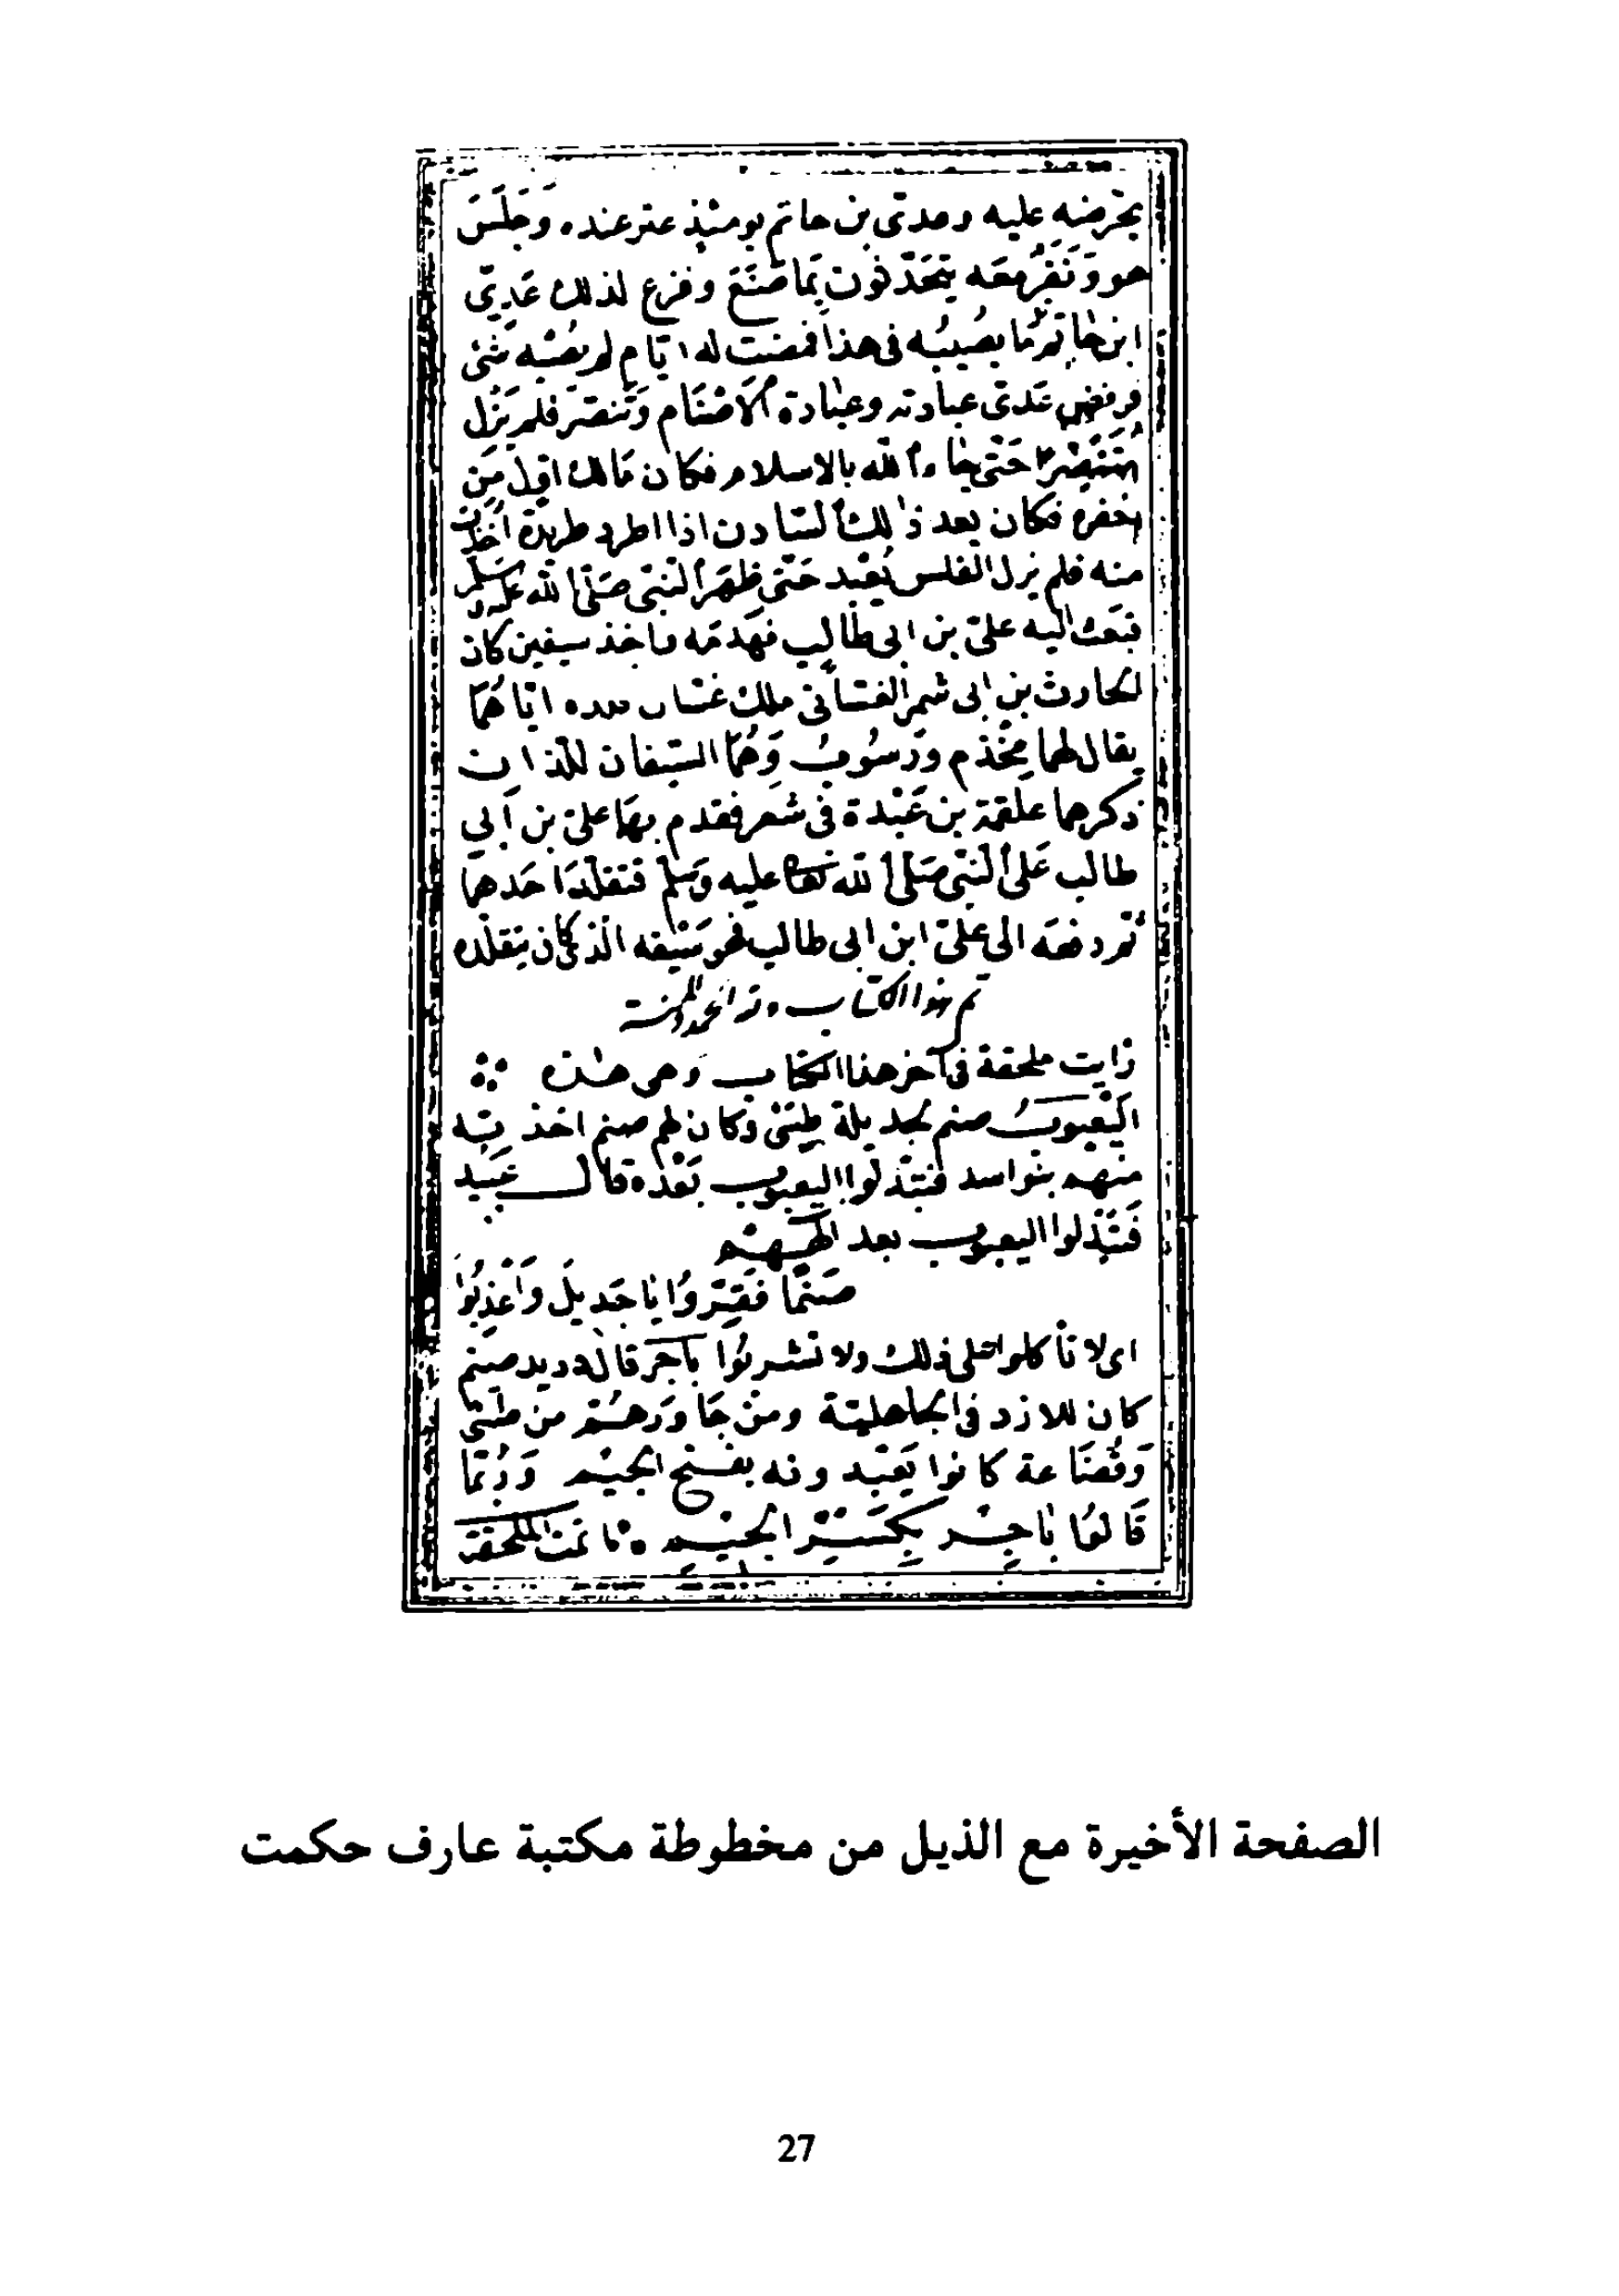 يحرضه عليه وعدى بن حاتم يومئذ عتر عنده وجَلَسَ
هو وَنَفَرٌ معَه يتحَدّثون بمَا صَنَعَ وفزع لذلك عَدِىّ
ابن حاتم مَا يصُيبُه فى هذا فمضت له ايّام لم يصُبْه شئ
فرفض عَدىّ عبادته وعبَادة الأصْنَام وَتنصّر فلم يَزَل
مُتَنَصِّرا حَتّى جاء الله بالاسلام فكان مَالك اوّل مَن
اخفره فكان بعد ذٰلك السّادن اذا اطرد طريدة أخذت
منه فلم يزل الفلس يُعْبد حَتّى ظهَرَ النّبىّ صَلّى الله عليه وسلم
فبَعَث اليه علىّ بن ابى طالب فهَدمَه واخذ سيفين كان
الحارث بن ابى شمر الغسّانىّ ملك غسّان قلده ايّاهُمَا
يقال لهما مِخْذم ورَسُوبُ وَهُمَا السّيفان اللّذان
ذكرهما علقمة بن عَبْدة فى شعره فقدم بهمَا علىّ بن أبي
طالب عَلَى النّبىّ صَلى الله تعالى عليه وَسَلم فتقلّدَ احَدهما
ثم دفعَه الى علىّ ابن ابى طالب فهو سَيْفه الذى كان يتقلّده
تم هذا الكتاب ولله الحمد والمنة
رَايت ملحقة فى آخر هذا الكتاب وهى هٰذه
اليَعبوبُ صنم لجديلة طيّئ وكان لهم صنم اخذته
منهم بنو اسد فتبَدّلوا اليعبوب بَعْدَه قال عَبيد
فَتَبَدّلوا اليعبوب بعد الٰههم
صَنَمًا فقِرّوا يَا جَديلَ وَأعْذِبُوا
اى لا تأكلوا على ذلك ولا تشربُوا باجر قال ابن دريد صنم
كان للازد فى الجاهليّة ومَنْ جَاوَرهُمْ من طىّئ
وَقُضَاعة كانوا يَعْبدونه بفتح الجيم وَرُبّمَا
قالوُا بَاجِر بِكَسْرِ الجيم تمت الملحقة
الصفحة الأخيرة مع الذيل من مخطوطة مكتبة عارف حكمت
27